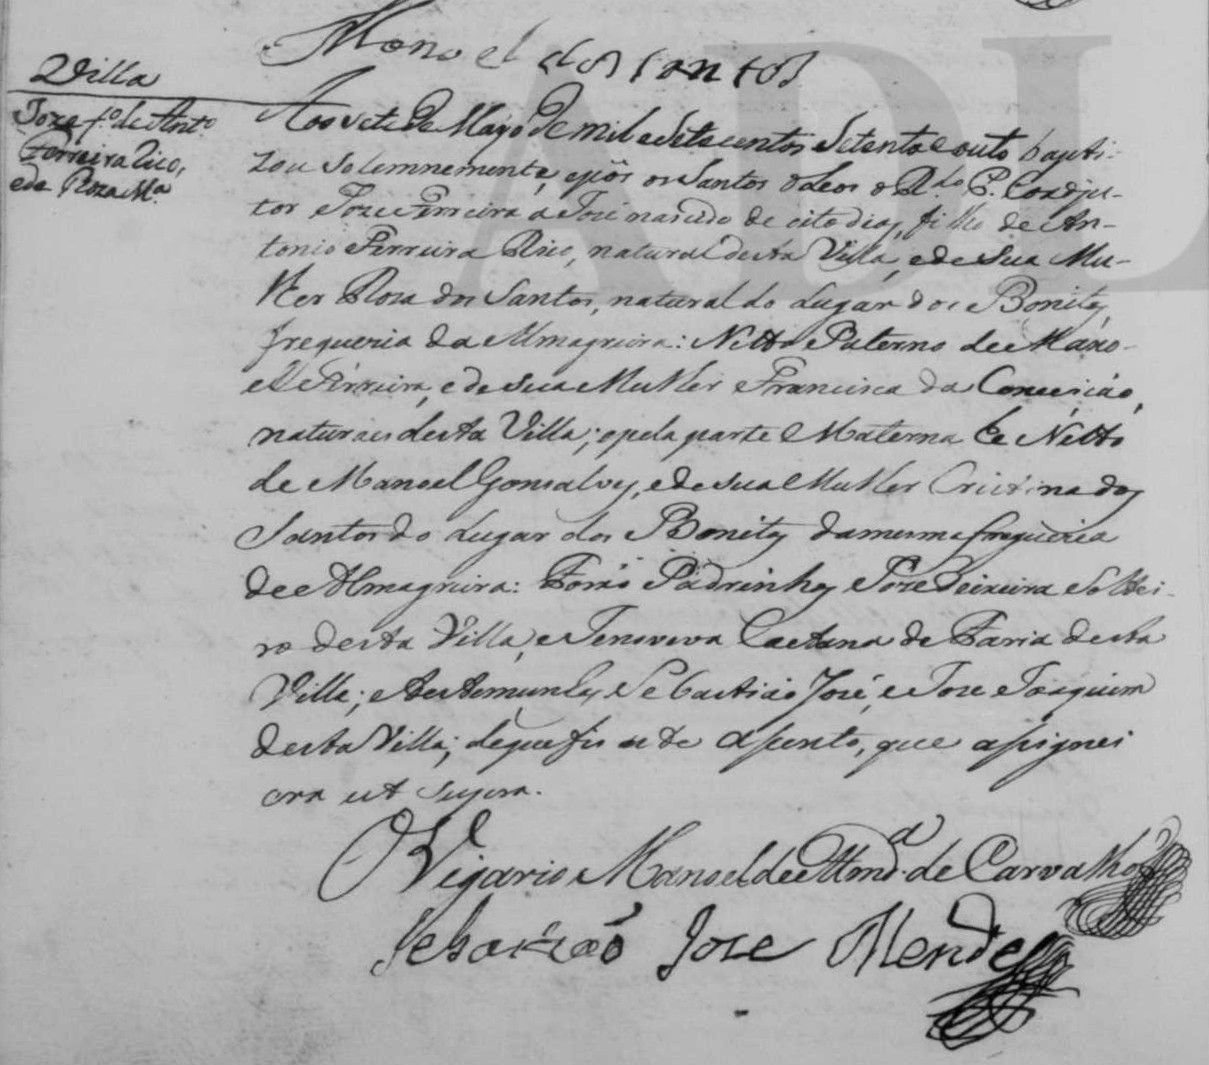 Manoel dos santos
Villa
Joze f.º de Ant.º
Ferreira Rico,
e de Roza M.ª
Aos sete de Mayo de mil e setecentos setenta e outo bapti-
zou solemnemente, e pôs os Santos oleos o R.do P. Coadju-
tor Joze Ferreira a José nascido de oito dias, filho de An-
tonio Ferreira Rico, natural desta Villa, e de sua Mu-
lher Rosa dos Santos, natural do Lugar dos Bonitos,
freguezia da Almagreira: Netto Paterno de Mano-
el Ferreira, e de sua Mulher Francisca da Conceição,
naturaes desta Villa; e pela parte Materna he Netto
de Manoel Gonsalves, e de sua Mulher Cristina dos
Santos do Lugar dos Bonitos da mesma freguezia
de Almagreira: Forão Padrinhos Joze Teixeira Soltei-
ro desta Villa, e Jenoveva Caetana de Faria desta
Villa; e testemunhas Sebastião José, e Joze Joaquim
desta Villa; de que fis este asento, que asignei
era ut supra.
O Vigario Manoel de Almd.ª de Carvalho
Sebastião Joze Mendes
ADL